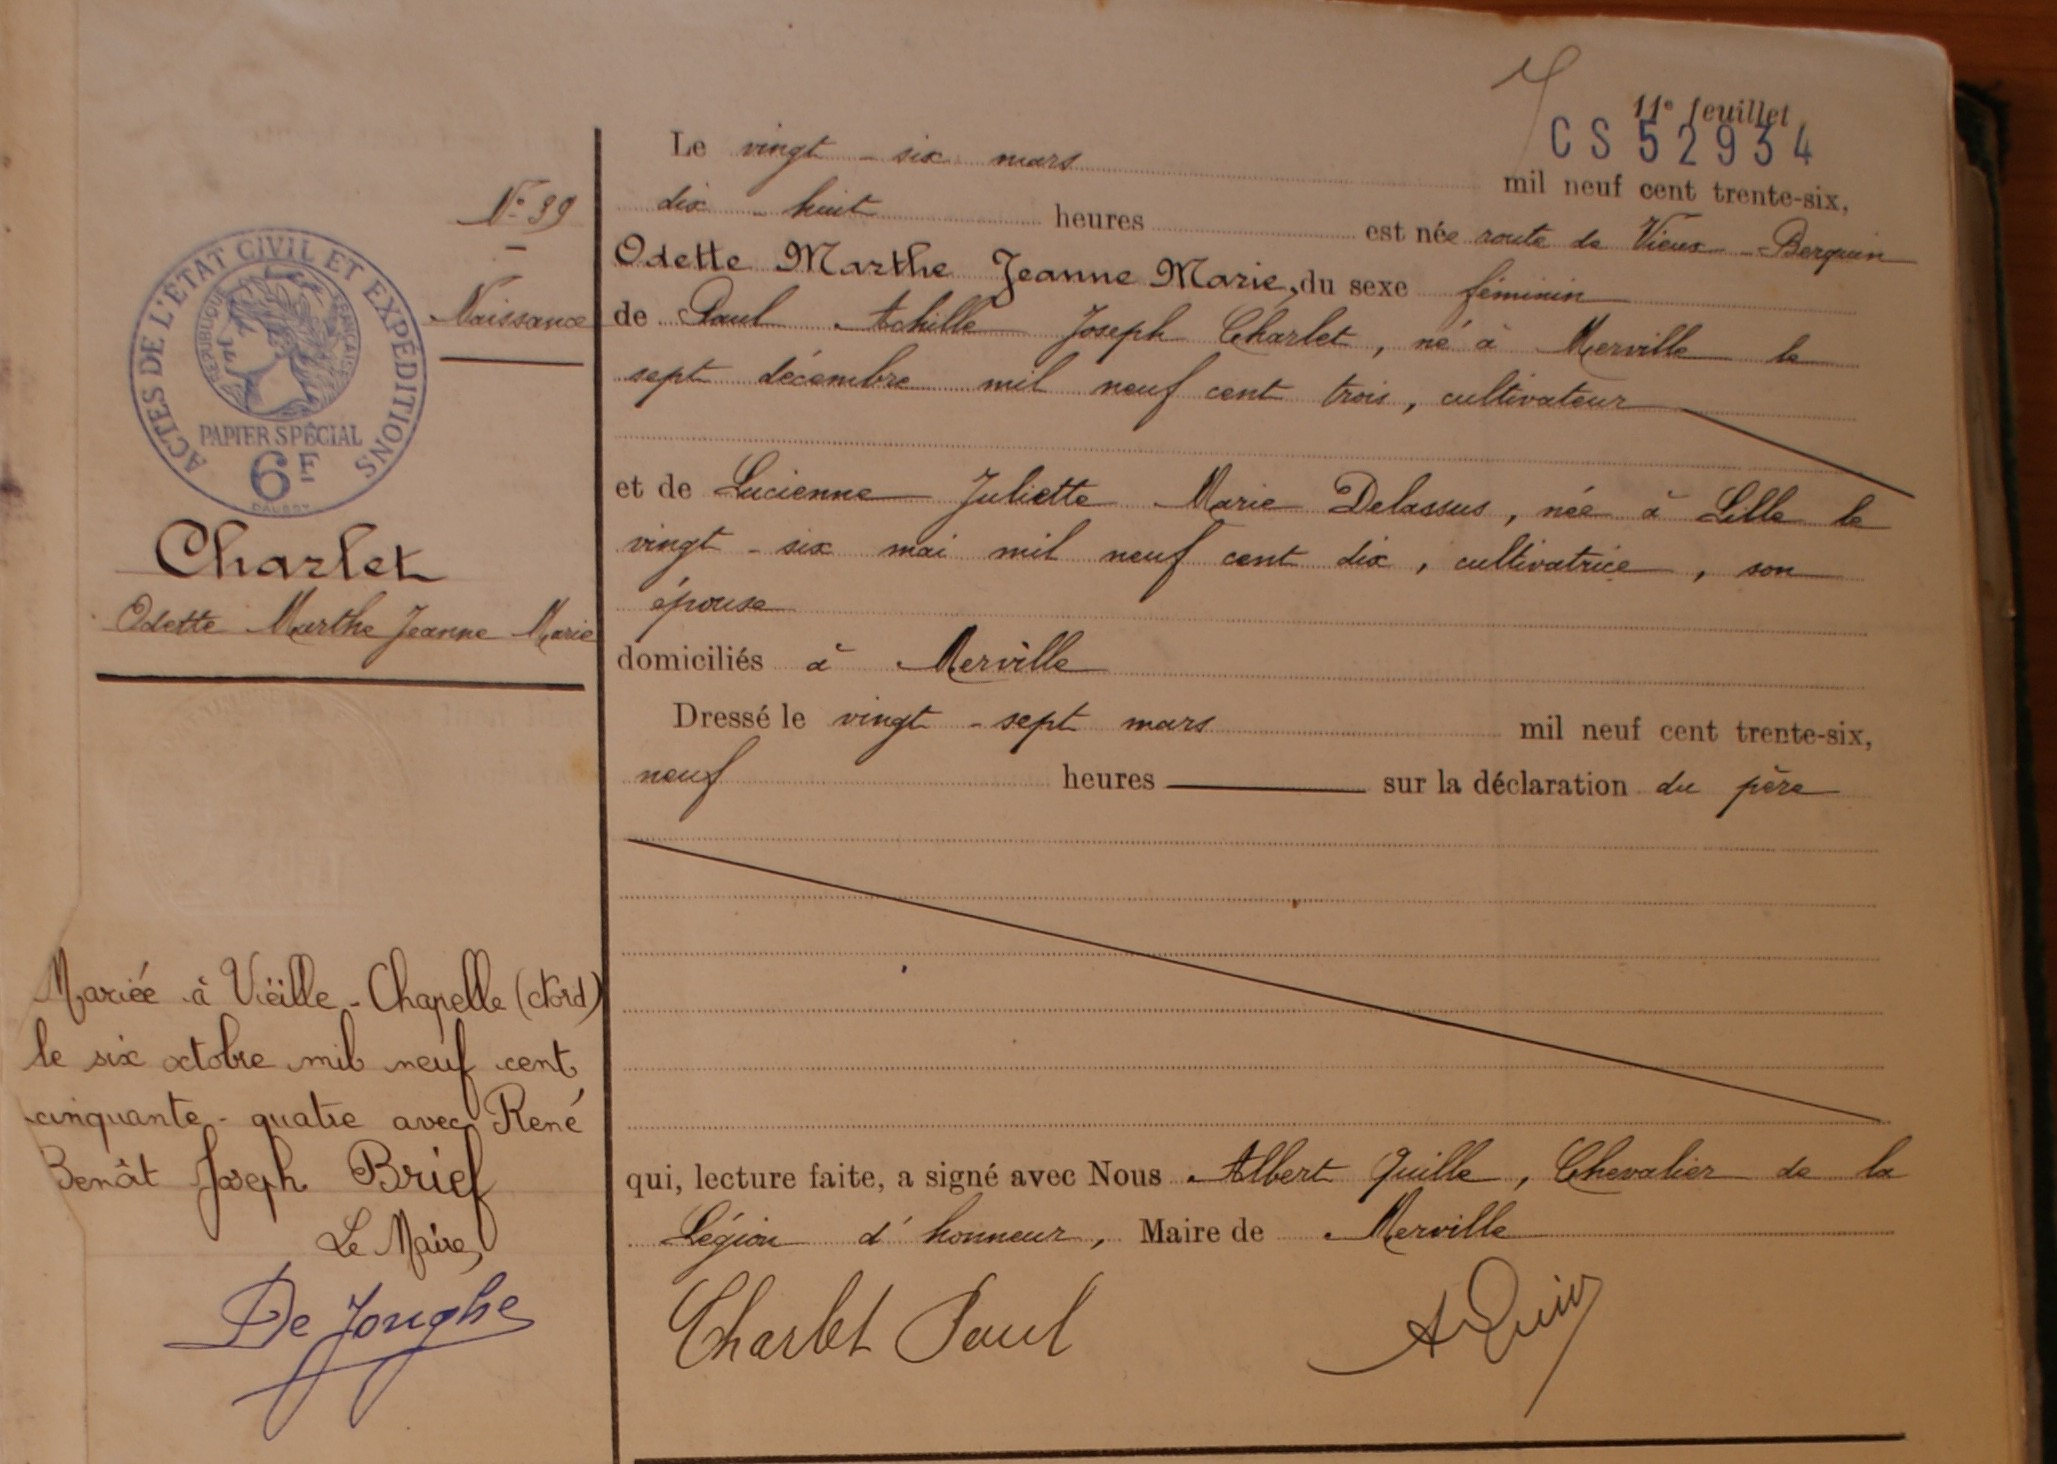 11e feuillet
CS 52934
N° 39
Naissance
ACTES DE L'ÉTAT CIVIL ET EXPÉDITIONS
RÉPUBLIQUE FRANÇAISE
PAPIER SPÉCIAL
6F
Charlet
Odette Marthe Jeanne Marie
Le vingt-six mars mil neuf cent trente-six,
dix-huit heures est née route de Vieux-Berquin
Odette Marthe Jeanne Marie, du sexe féminin
de Paul Achille Joseph Charlet, né à Merville le
sept décembre mil neuf cent trois, cultivateur
et de Lucienne Juliette Marie Delassus, née à Lille le
vingt-six mai mil neuf cent dix, cultivatrice, son
épouse
domiciliés à Merville
Dressé le vingt-sept mars mil neuf cent trente-six,
neuf heures sur la déclaration du père
qui, lecture faite, a signé avec Nous Albert Quille, Chevalier de la
Légion d'honneur, Maire de Merville
Charlet Paul
Mariée à Vieille-Chapelle (Nord)
le six octobre mil neuf cent
cinquante-quatre avec René
Benôit Joseph Brief
Le Maire,
De Jonghe